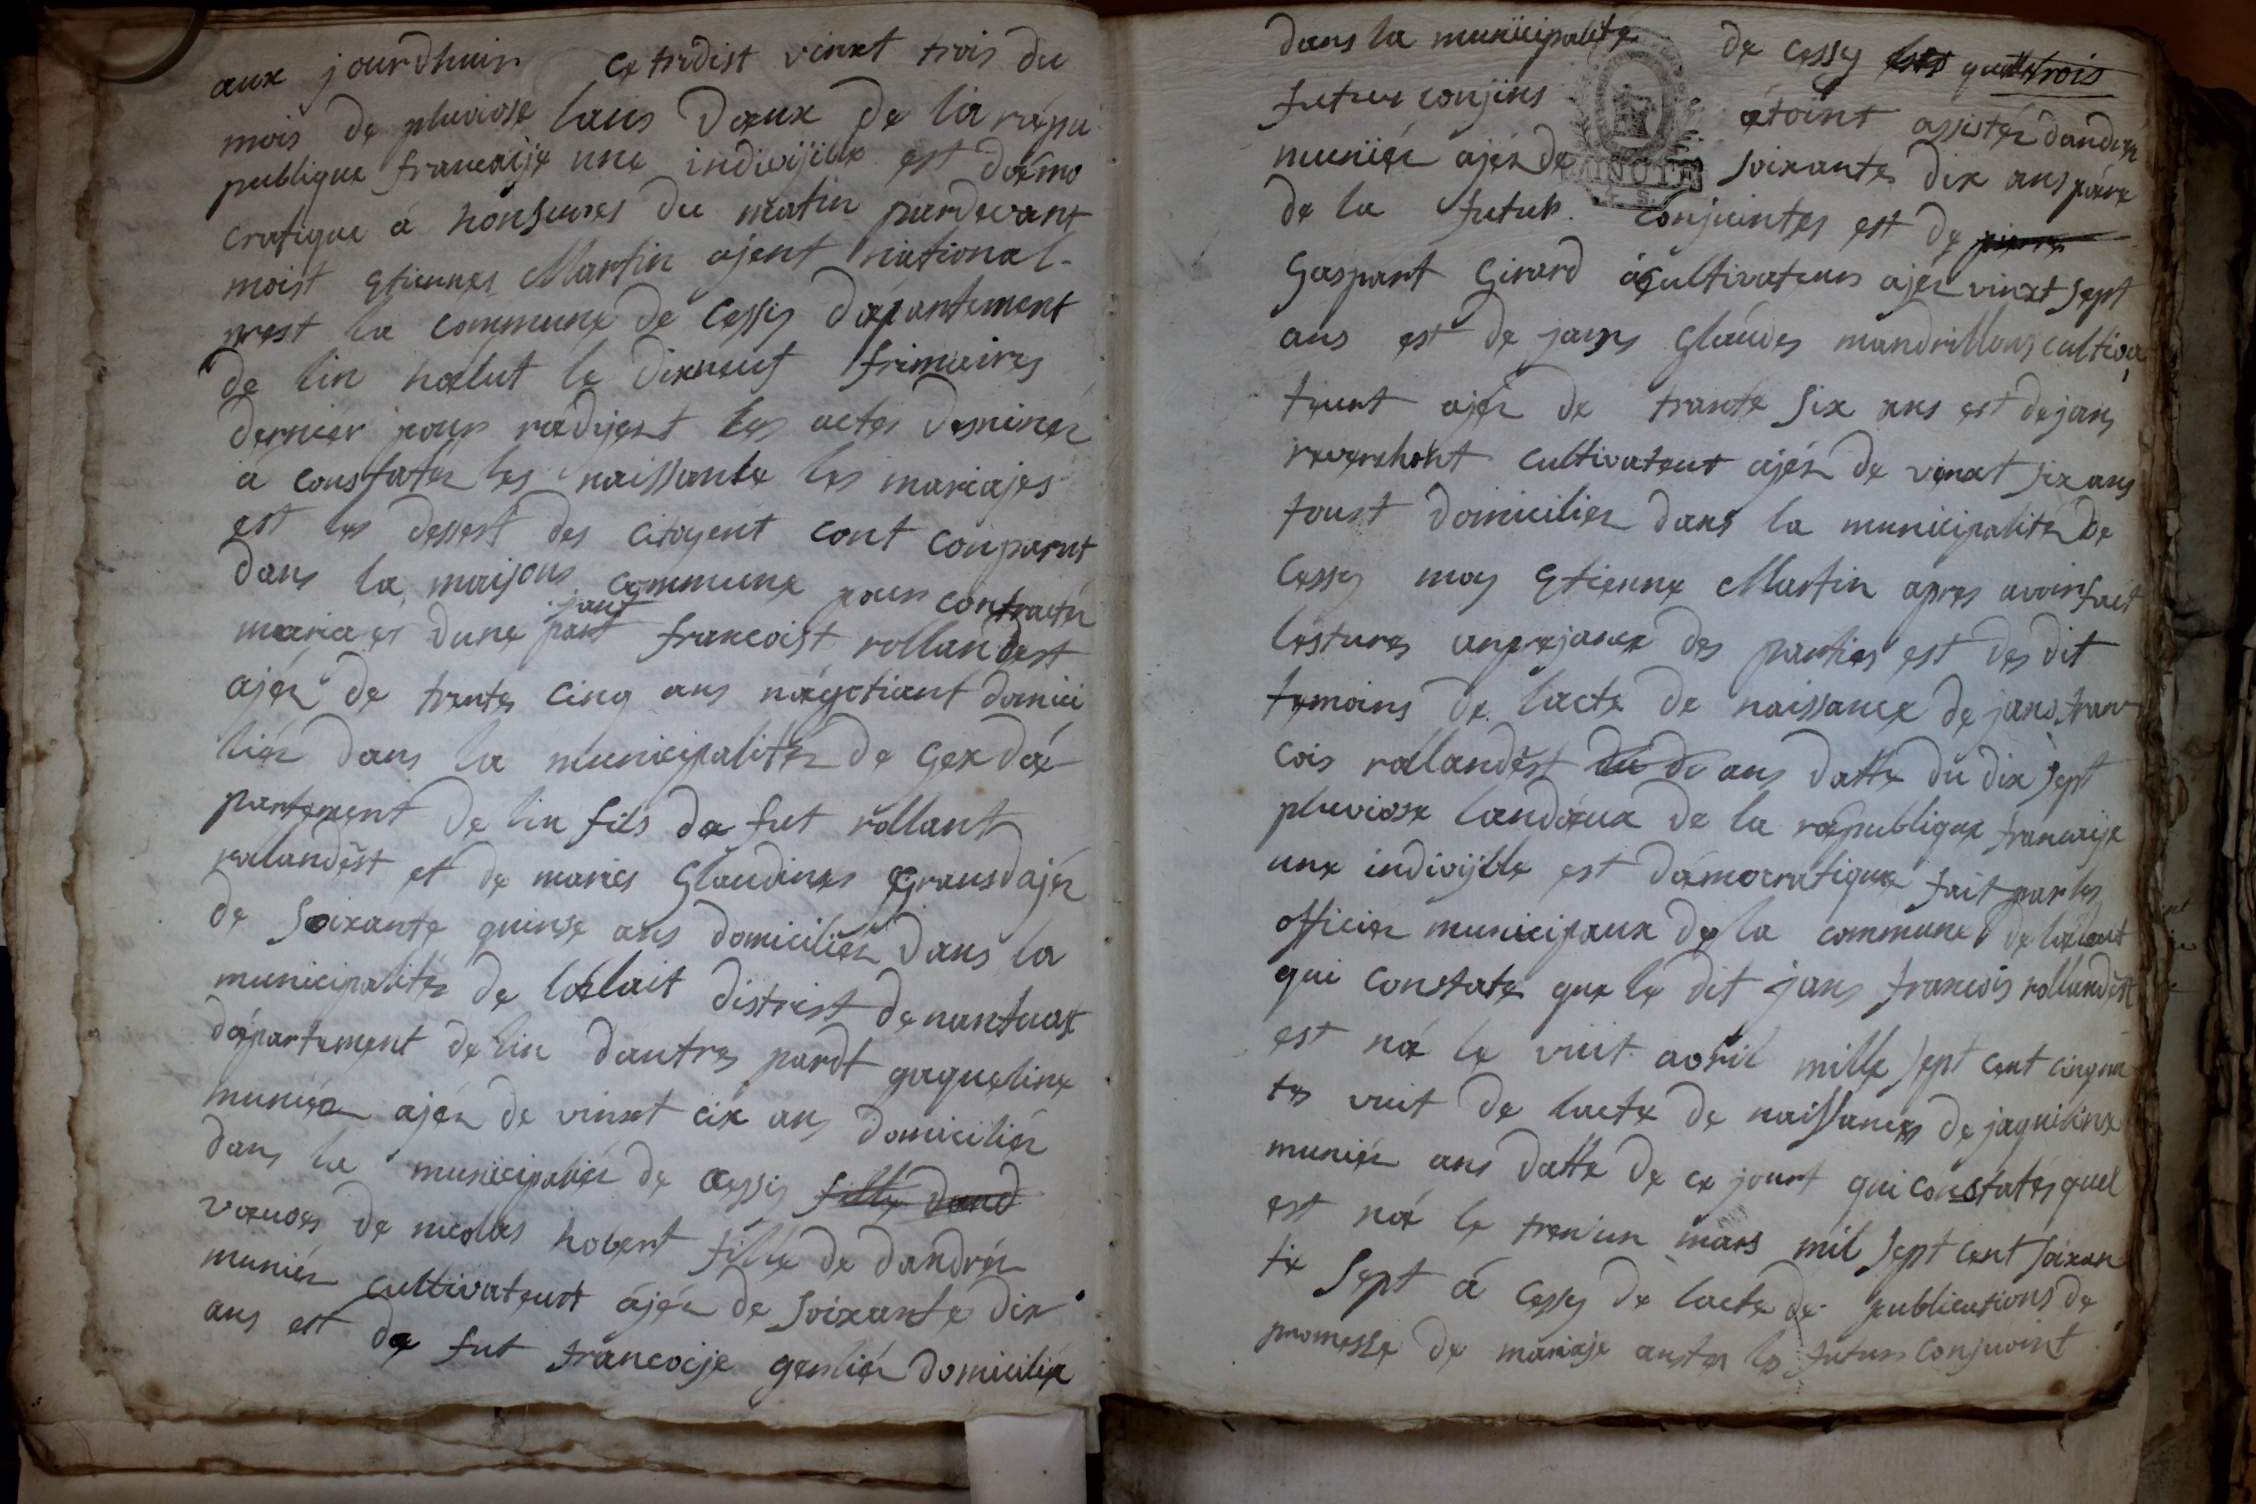 aux jourdhuis cetridist vinxt trois du
mois de pluviose lans deux de la répu
publique francaije une indivijible est démo
cratique á honseures du matin pardevant
moist Etiennes Martin ajent national
prest la commune de Cessy département
de lin hœlut le dixneuf frimaires
dernier pour rédijert les actes desninér
a constater les naissante les mariajes
est les dessest des citoyent cont conparut
dans la maisons commune pour contractér
mariajes dune part francoist rollandest
ajér de trentes cinq ans négotiant domici
liér dans la municipalitér de Gex dé
partement de lin fils de fut rollant
rolandest et de maries Glaudines Grausdajér
de soixante quinse ans domiciliér dans la
municipalitér de lélait distrist de nantuast
département de lin dautres pardt gaqueline
muniér ajér de vinxt cix ans domiciliér
dans la municipaliér de Cessis fille dand
veuves de nicolas hobert fille de dandrér
muniér cultivateurt ájér de soixantes dix
ans est de fut francoise genliér domicilie
dans la municipalite de Cessy trois
futur conjins étoint assistér dandrér
muniér ajér de soixantes dix ans pére
MINUTE
de la futur conjuintes est de pierre
Gaspart Girard cultivateurs ajer vinxt sept
ans est de jans Glaudes mandrillons cultiva
teurt ajér de trante six ans est dejans
reverchont cultivateut ajér de vinxt six ans
toust domiciliér dans la municipalitér de
Cessy moy Etienne Martin apres avoir fait
lesture anprejance des parties est des dit
temoins de lacte de naissance de jans fran
cois rolandest ans datte du dix sept
pluviose landeux de la république francaije
une indivijible est démocratique fait par les
officier municipaux de la commune de lélait
qui constate que le dit jans francois rollandest
est né le vuit avril mille sept cent cinquan
tes vuit de lacte de naissances de jaqueline
muniér ans datte de ce jourt qui constatés quel
est né le tren'un mars mil sept cent soixan
te sept á Cessy de lacte de publications de
promesse de mariaje autes les futurs conjuoint